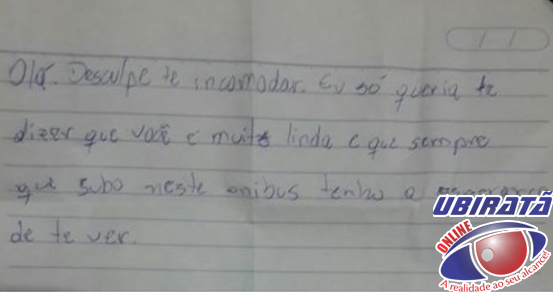 Olá. Desculpe te incomodar. Eu só queria te
dizer que você é muito linda e que sempre
que subo neste onibus tenho a
de te ver.
UBIRATÃ
ONLINE
A realidade ao seu alcance!